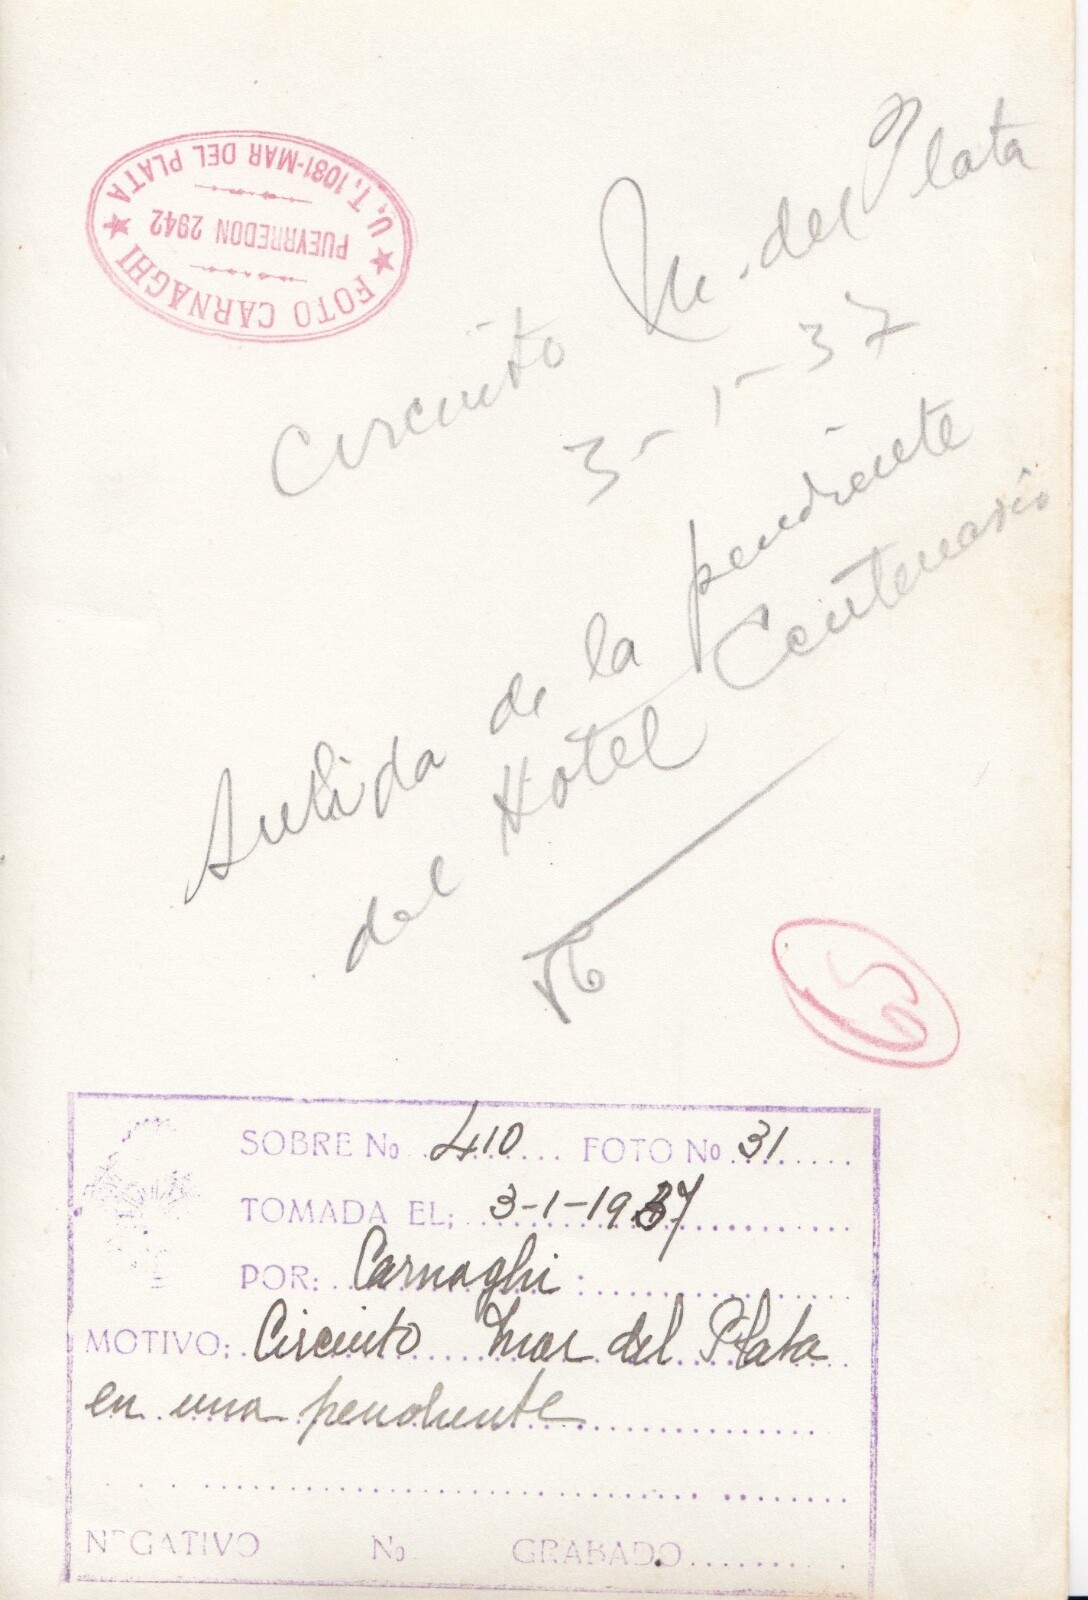 ★ FOTO CARNAGHI ★
PUEYRREDON 2942
U.T. 1081-MAR DEL PLATA
Circuito M. del Plata
3-1-37
Subida de la pendiente
del Hotel Centenario
SOBRE No 410 FOTO No 31
TOMADA EL; 3-1-1937
POR: Carnaghi
MOTIVO: Circuito Mar del Plata
en una pendiente
NEGATIVO No GRABADO